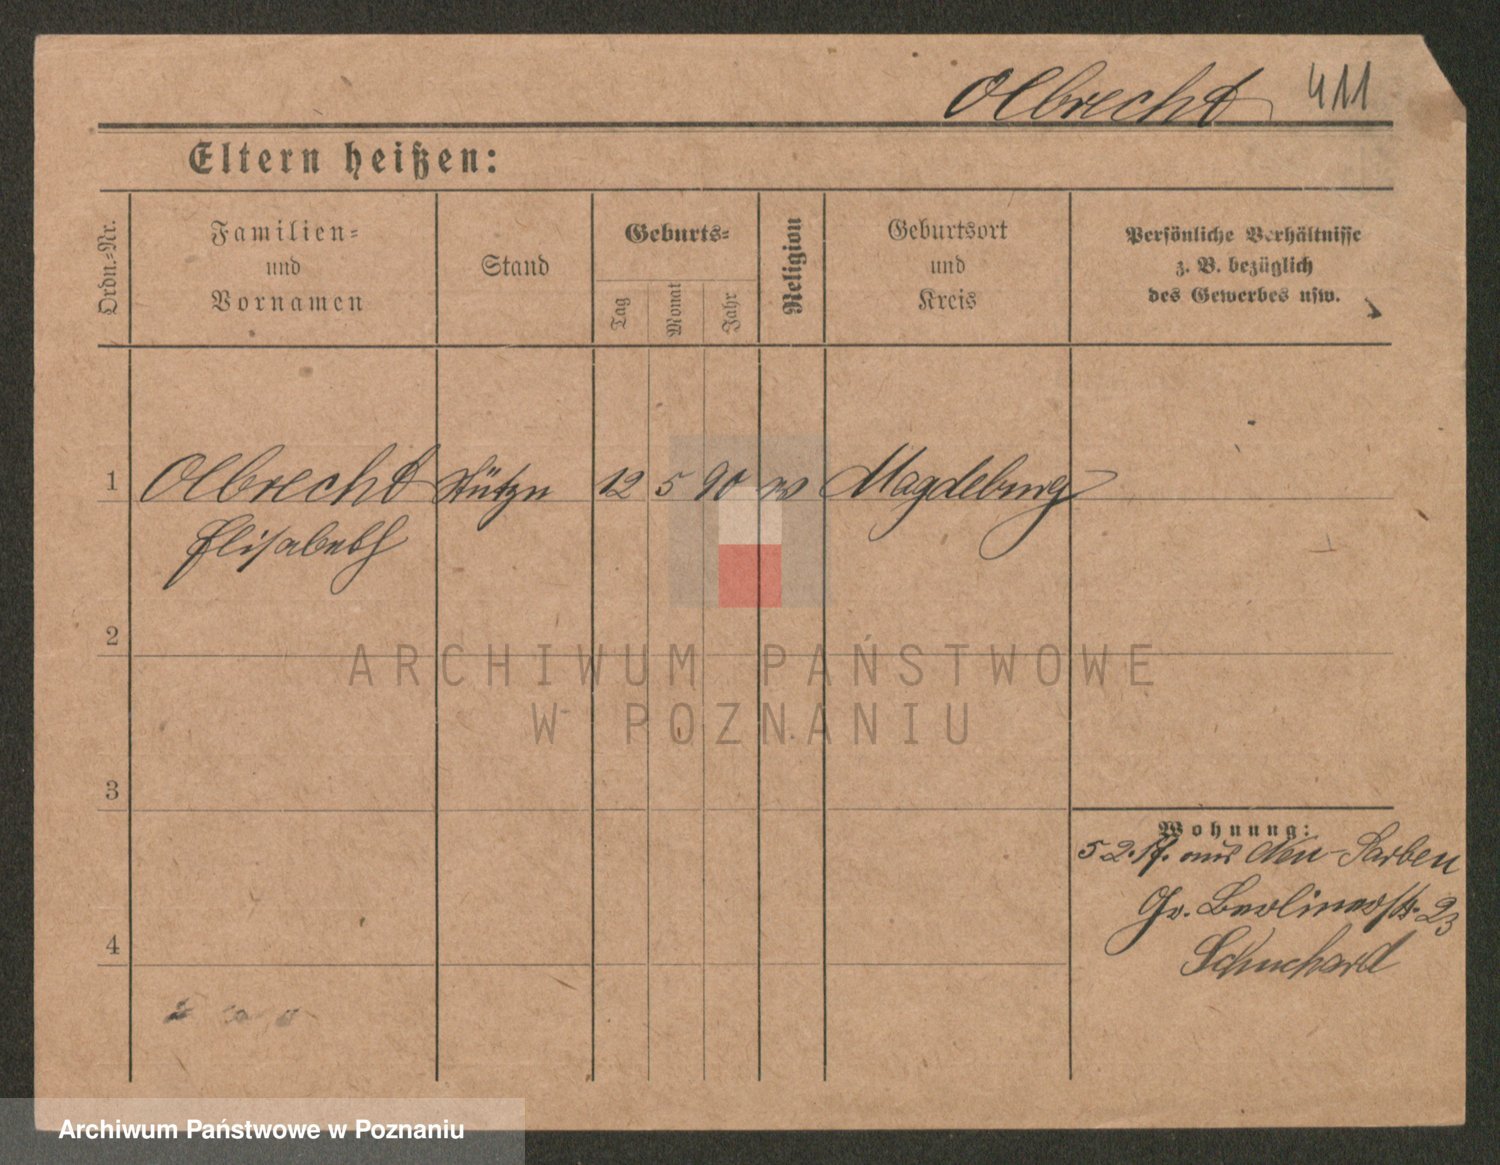 Olbrecht 411
Eltern heißen:
Ordn.-Nr.
Familien-
und
Vornamen
Stand
Geburts-
Tag
Monat
Jahr
Religion
Geburtsort
und
Kreis
Persönliche Verhältnisse
z. B. bezüglich
des Gewerbes usw.
1 Olbrecht Stütze 12 5 90 Magdeburg
Elisabeth
2
3
4
Wohnung:
5 2. 17. aus Neu-Sarben
Gr. Berlinerstr. 23
Schuchard
ARCHIWUM PAŃSTWOWE
W POZNANIU
Archiwum Państwowe w Poznaniu